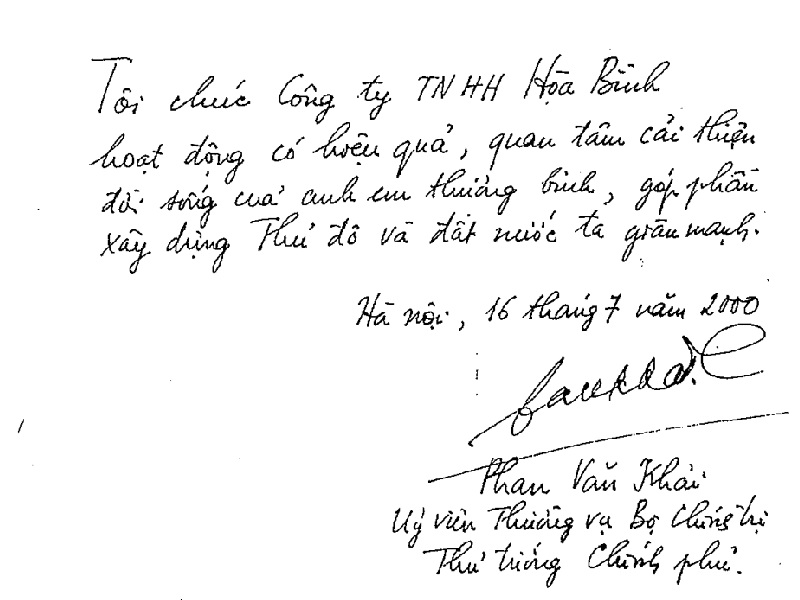 Tôi chúc Công ty TNHH Hòa Bình
hoạt động có hiệu quả, quan tâm cải thiện
đời sống của anh em thương binh, góp phần
xây dựng Thủ đô và đất nước ta giàu mạnh.
Hà nội, 16 tháng 7 năm 2000
Phan Văn Khải
Uỷ viên Thường vụ Bộ Chính trị
Thủ tướng Chính phủ.